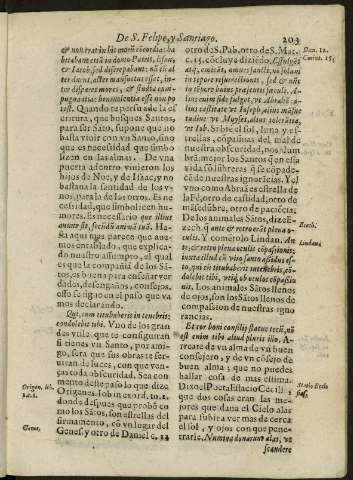 De S. Felipe, y Santiago. 203
& non erat in his morũ cõcordia: ha
bitabant etiã in domo Patris, Esau,
& Iacob, sed discrepabant: nã al
ter durus, alter mansuetus esset, in-
ter dispares mores, & studia com-
pugnantia: beniuolentia esse non po
tuit. Quando te persuade la es-
critura, que busques Santos,
para ser Sãto, supone que no
basta viuir con vn Santo, sino
que es necesidad que simbo-
lizen en las almas. De vna
puerta adentro viuieron los
hijos de Noe, y de Isaac, y no
bastana la santidad de los v-
nos, para la de los otros. Es ne
cesidad, que simbolizen hu-
mores. Es necesario que illius
animæ sit, secũdũ animã tuã. Ha-
sta aqui mas parece que aue-
mos entablado, que explica-
do nuestro assumpto, el qual
es que la compañia de los Sã-
tos, es buena para enseñar ver
dades, desengaños, consejos,
esso se siga en el paso que va
mos declarando.
Qui, cum titubaueris in tenebris:
condolebit tibi. Vno de los gran
des vtiles que te configuran
si tienes vn Santo, por ami-
go, sera que sus obras te ser-
uiran de luces, con que ven-
ças toda obscuridad. Sea con
mento deste paso lo que dize
Origenes. Iob in exord. to. 1.
donde despues que probó co
mo los Sãtos, son estrellas del
firmamento, cõ vn lugar del
Genes. y otro de Daniel c. 12
Origen. lib.
Genes.
otro de S. Pab. otro de S. Mat.
c. 13. cõcluye diziẽdo.
atq; emicãt, omnes sancti, vt solum
in tempore resurrectionis, sed & nũc
in tepore huius praesentis saculi. A-
lius enim sole fulget, vt Abrahã a-
lius castitate vt Ioseph, alius masue
tudine vt Moyses, alius
vt Iob. Sirbe el sol, luna y es-
trellas, cõpañias del mar de
nuestra obscuridad, nos alum
brã, mejor los Santos q̃ en esta
vida sõ libreras q̃ se copade-
cẽ de nuestras ignorãcias. Y el
vno como Abraã es estrella de
la Fè, otro de castidad, otro de
masedũbre, otro de paciẽcia.
De los animales Sãtos, dize E-
zech. q̃ ante & retro erãt plena o-
culis. Y comẽtolo Lindan. An
te, & retro plena oculis cõpasionis:
iuxta illud cũ viro sanctò assiduus es-
to, qui cũ titubaberit intenebris, cõ-
dolebit tibi, vsiq; ob oculos cõpasio
nis. Los animales Sãtos llenos
de ojos, son los Santos llenos
de compasion de nuestras igno
rancias.
Et cor boni consilij statue tecũ, nõ
est enim tibi aliud pluris illo. A-
rreate de vn alma de vn buen
consejero, y de vn cõsejo de
buen alma; que no puedes
hallar cosa de mas estima.
Dixo el Poeta Estacio Cecili,
que dos cosas eran las me-
jores que daua el Cielo alas
para subir a ver mas de cerca
el sol, y ojos con que pene-
trarle. Numina donarunt alas, vt
scandere
Dan. 12.
Corint. 15.
Ezech.
Lindan.